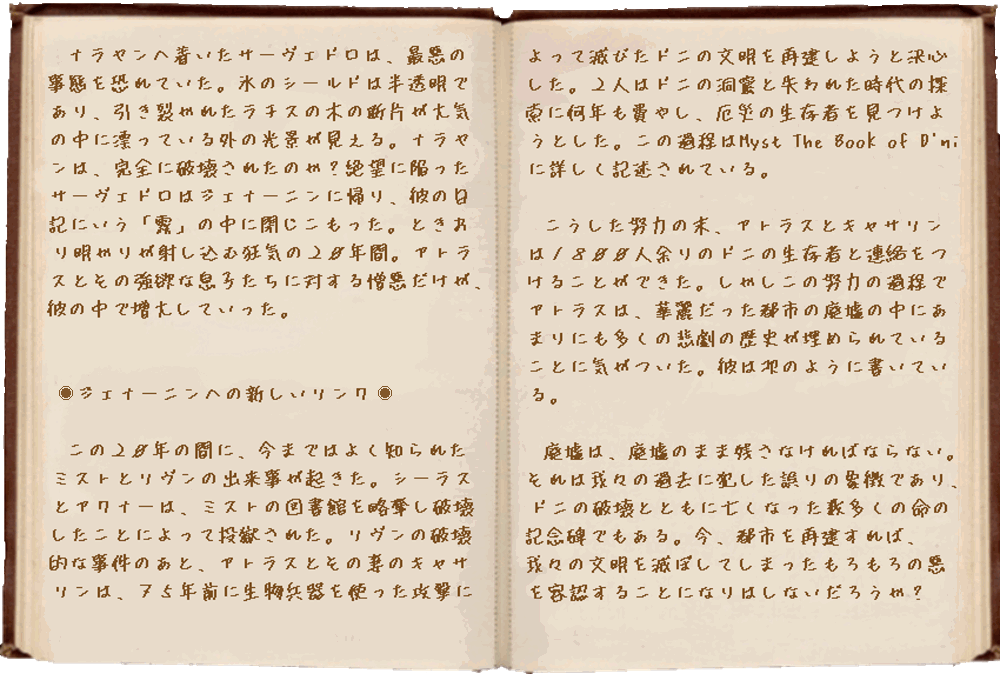 ナラヤンへ着いたサーヴェドロは、最悪の
事態を恐れていた。氷のシールドは半透明で
あり、引き裂かれたラチスの木の断片が大気
の中に漂っている外の光景が見える。ナラヤ
ンは、完全に破壊されたのか?絶望に陥った
サーヴェドロはジェナーニンに帰り、彼の日
記にいう「霧」の中に閉じこもった。ときお
り明かりが射し込む狂気の20年間。アトラ
スとその強欲な息子たちに対する憎悪だけが、
彼の中で増大していった。
◉ジェナーニンへの新しいリンク◉
この20年の間に、今まではよく知られた
ミストとリヴンの出来事が起きた。シーラス
とアクナーは、ミストの図書館を略奪し破壊
したことによって投獄された。リヴンの破壊
的な事件のあと、アトラスとその妻のキャサ
リンは、75年前に生物兵器を使った攻撃に
よって滅びたドニの文明を再建しようと決心
した。2人はドニの洞窟と失われた時代の探
索に何年も費やし、厄災の生存者を見つけよ
うとした。この過程はMyst The Book of D'ni
に詳しく記述されている。
こうした努力の末、アトラスとキャサリン
は1800人余りのドニの生存者と連絡をつ
けることができた。しかしこの努力の過程で
アトラスは、華麗だった都市の廃墟の中にあ
まりにも多くの悲劇の歴史が埋められている
ことに気がついた。彼は次のように書いてい
る。
廃墟は、廃墟のまま残さなければならない。
それは我々の過去に犯した誤りの象徴であり、
ドニの破壊とともに亡くなった数多くの命の
記念碑でもある。今、都市を再建すれば、
我々の文明を滅ぼしてしまったもろもろの悪
を容認することになりはしないだろうか?